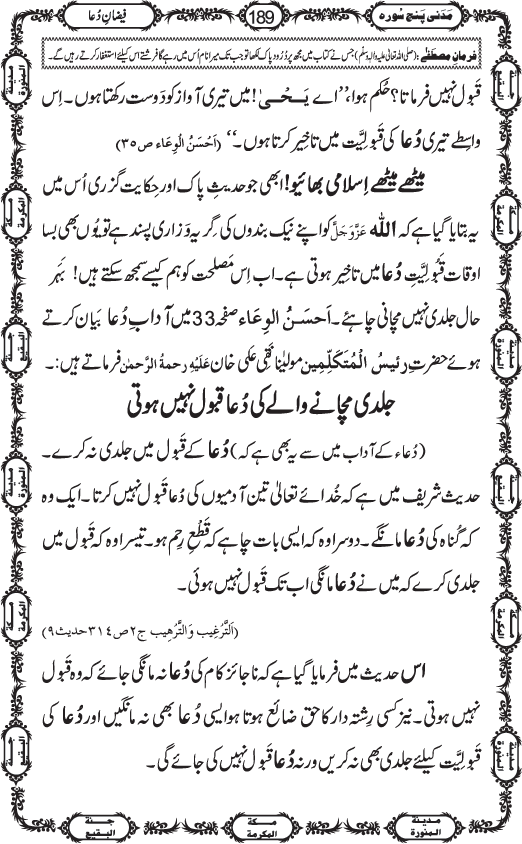 مَدَنی پنج سورہ
189
فیضانِ دُعا
فرمانِ مصطفٰے : (صلی اللہ تعالیٰ علیہ والہ وسلّم) جس نے کتاب میں مجھ پر دُرُود پاک لکھا تو جب تک میرا نام اُس میں رہے گا فرشتے اس کیلئے استغفار کرتے رہیں گے۔
قَبول نہیں فرماتا؟ حُکم ہوا، ’’اے یَحْیٰ! میں تیری آواز کو دوست رکھتا ہوں۔ اِس
واسِطے تیری دُعا کی قَبولِیَّت میں تاخیر کرتا ہوں۔‘‘ (اَحْسَنُ الْوِعَاء ص ۳۵)
میٹھے میٹھے اسلامی بھائیو! ابھی جو حدیثِ پاک اور حِکایت گزری اُس میں
یہ بتایا گیا ہے کہ اللہ عَزَّوَجَلَّ کو اپنے نیک بندوں کی گِریہ وزاری پسند ہے تو یُوں بھی بسا
اوقات قَبولِیَّتِ دُعا میں تاخیر ہوتی ہے۔ اب اِس مَصلحت کو ہم کیسے سمجھ سکتے ہیں! بَہَر
حال جلدی نہیں مچانی چاہئے۔ اَحسَنُ الوِعَاء صفحہ 33 میں آدابِ دُعا بیان کرتے
ہوئے حضرتِ رئیسُ الْمُتَکَلِّمِین مولٰینا نقی علی خان عَلَیْہِ رحمۃُ الرَّحمٰن فرماتے ہیں:۔
جلدی مچانے والے کی دُعا قبول نہیں ہوتی
(دُعاء کے آداب میں سے یہ بھی ہے کہ) دُعا کے قَبول میں جلدی نہ کرے۔
حدیث شریف میں ہے کہ خُدائے تعالیٰ تین آدمیوں کی دُعا قَبول نہیں کرتا۔ ایک وہ
کہ گُناہ کی دُعا مانگے۔ دوسرا وہ کہ ایسی بات چاہے کہ قَطْعِ رِحم ہو۔ تیسرا وہ کہ قَبول میں
جلدی کرے کہ میں نے دُعا مانگی اب تک قَبول نہیں ہوئی۔
(اَلتَّرْغِیب وَالتَّرْہِیب ج۲ ص۳۱۴ حدیث۹)
اس حدیث میں فرمایا گیا ہے کہ ناجائز کام کی دُعا نہ مانگی جائے کہ وہ قَبول
نہیں ہوتی۔ نیز کسی رِشتہ دار کا حق ضائع ہوتا ہو ایسی دُعا بھی نہ مانگیں اور دُعا کی
قَبولِیَّت کیلئے جلدی بھی نہ کریں ورنہ دُعا قَبول نہیں کی جائے گی۔
مدینۃ المنورۃ
مکۃ المکرمۃ
جنۃ البقیع